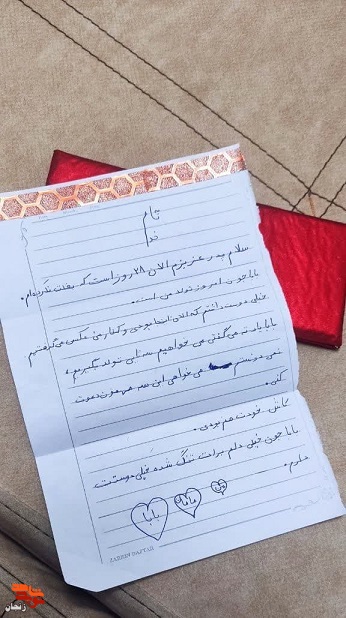 بنام
خدا
سلام پدر عزیزم الان ۲۸ روز است که بغلت نکرده‌ام.
بابا جون امروز تولد من است.
خیلی دوست داشتم که الان اینجا بودی و کنار من عکس می‌گرفتیم.
بابا یادته می‌گفتی می‌خواهیم سنایی تولد بگیریم،
نمی‌دونستم می‌خواهی این همه مهمون دعوت
کنی.
کاش خودت هم بودی.
بابا جون خیلی دلم برات تنگ شده خیلی دوستت
دارم.
بابا
ماما
ZARRIN DAFTAR
زنجان